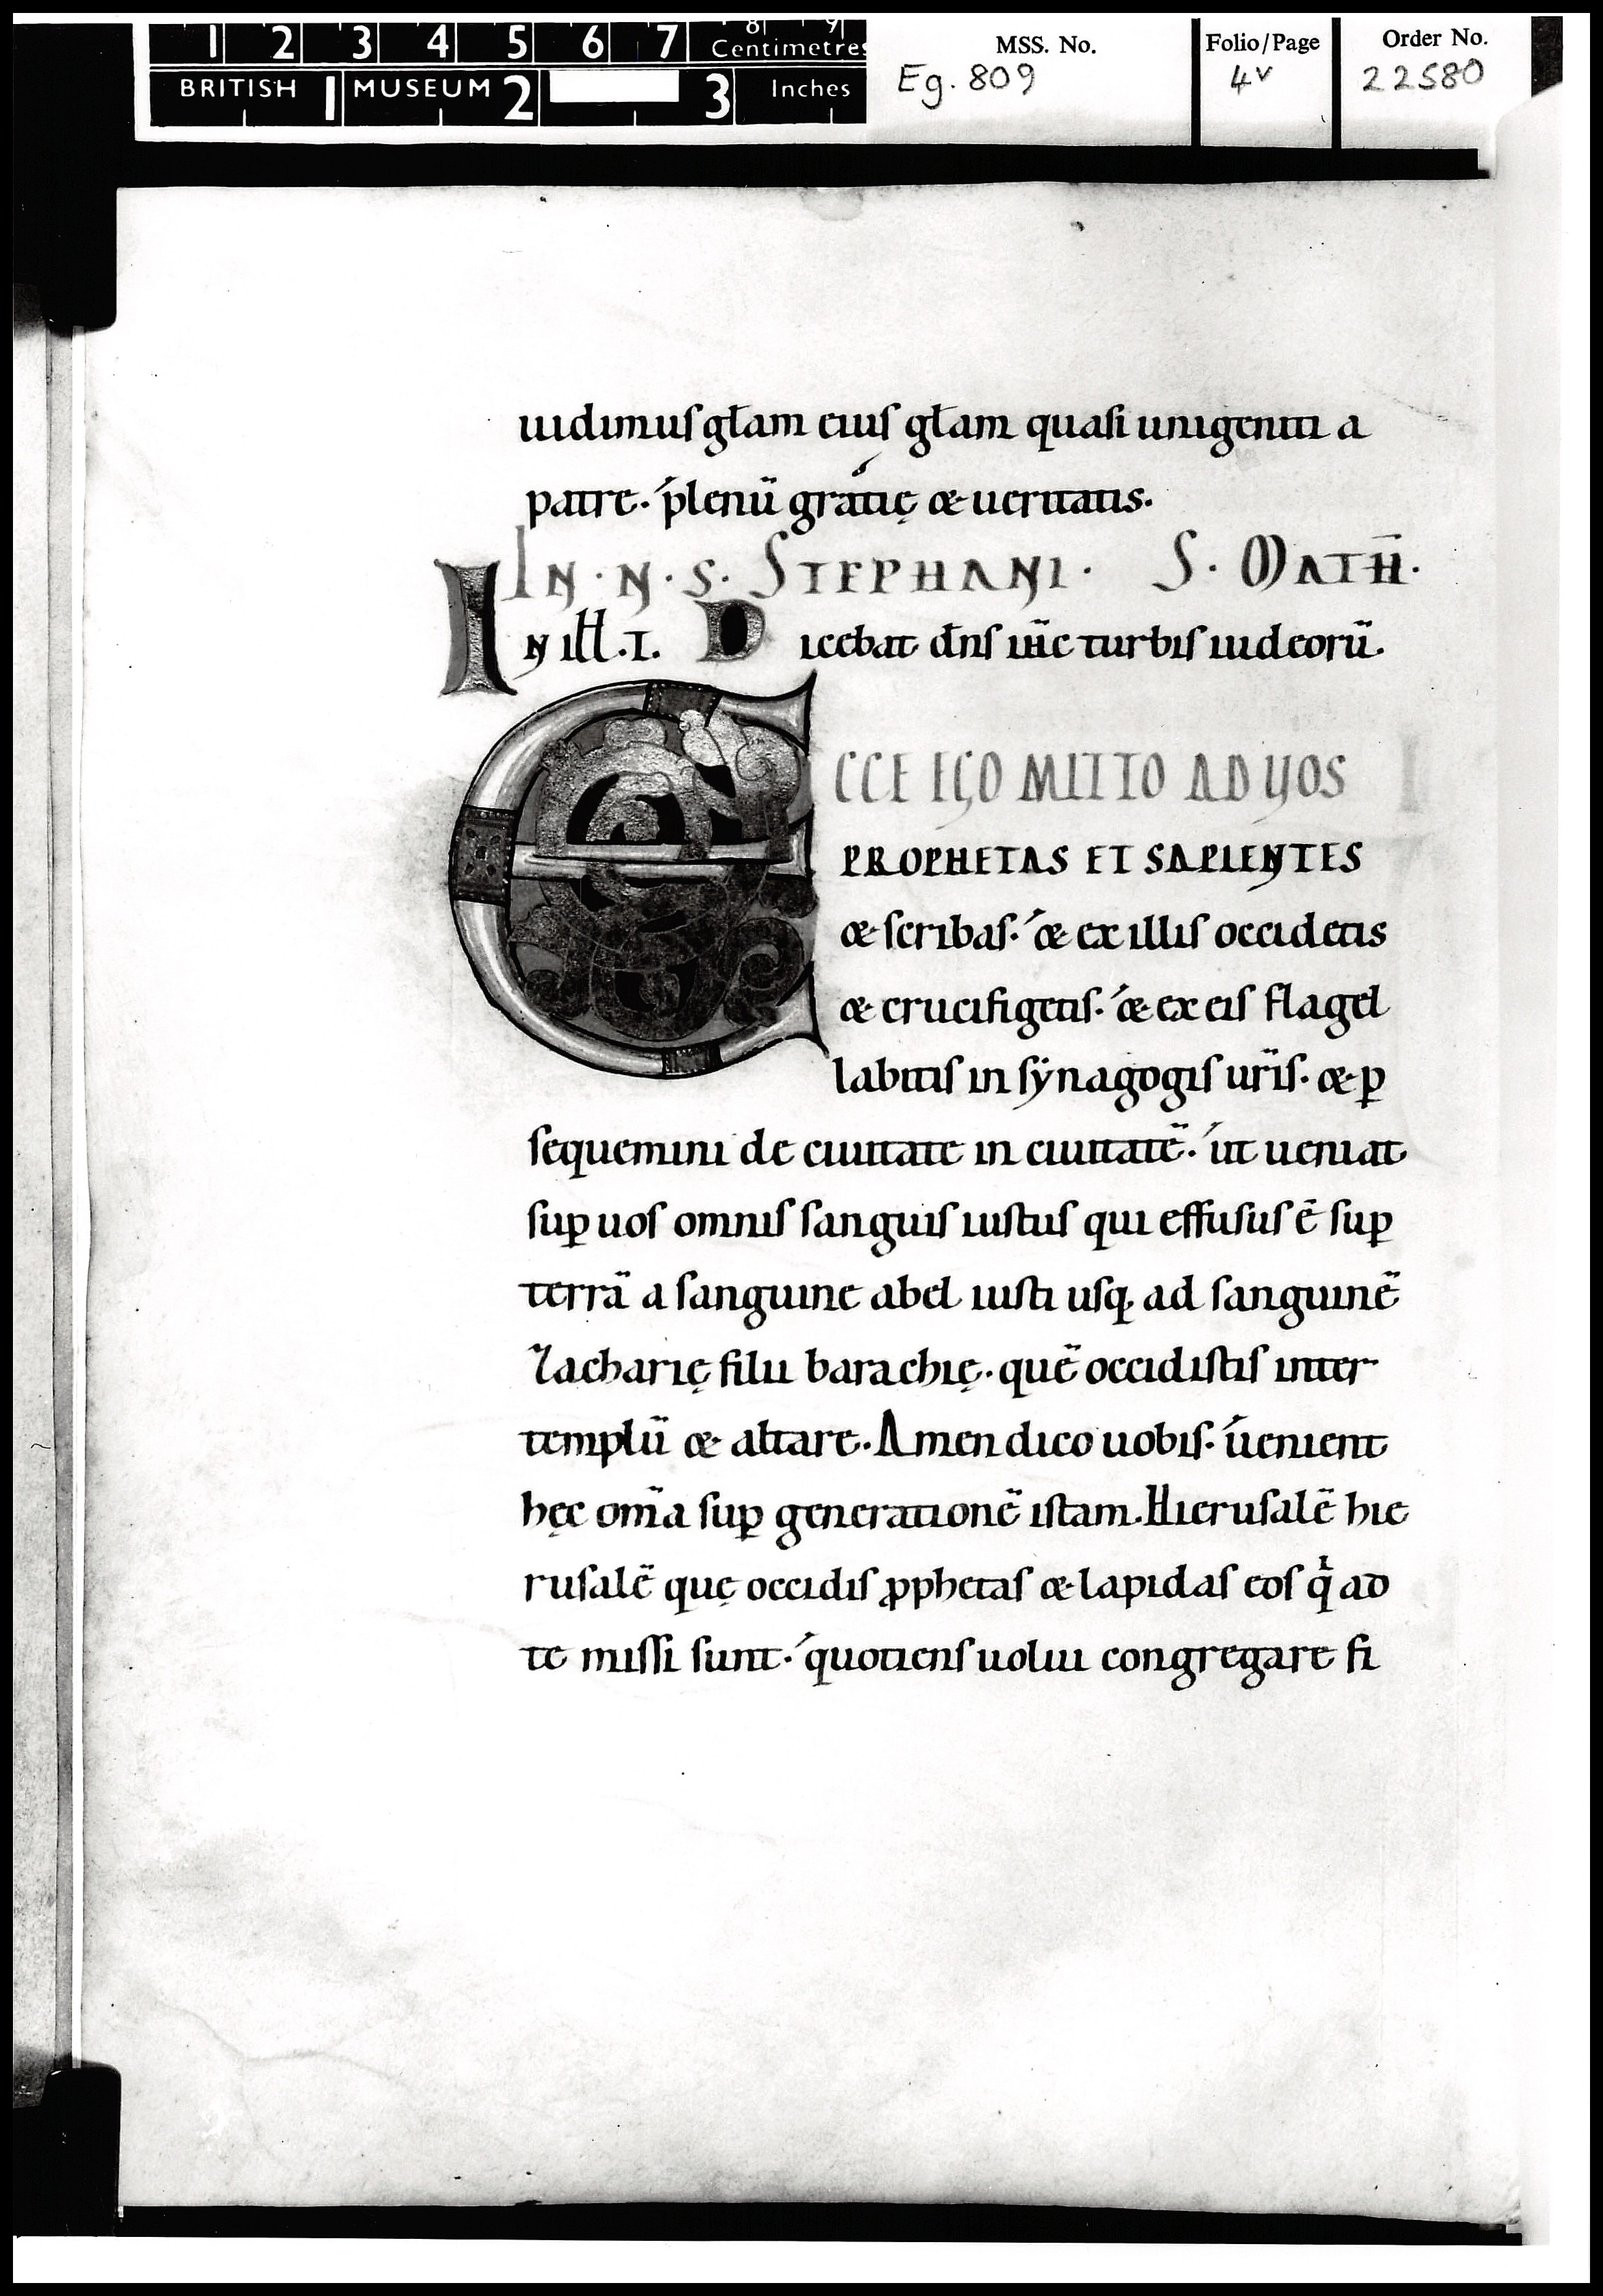 1 2 3 4 5 6 7 8 9 Centimetres
BRITISH 1 MUSEUM 2 3 Inches
MSS. No. Folio/Page Order No.
Eg. 809 4v 22580
uidimus gł̄am eius gł̄am quasi unigeniti a
patre. plenū gratię & ueritatis.
IN · N · S · STEPHANI · S · MATH̄ ·
IN iłł .I. Dicebat dn̄s ih̄c turbis iudeorū.
ECCE EGO MITTO AD VOS
PROPHETAS ET SAPIENTES
& scribas. & ex illis occidetis
& crucifigetis. & ex eis flagel
labitis in synagogis ur̄is. & ꝑ
sequemini de ciuitate in ciuitatē. ut ueniat
suꝑ uos omnis sanguis iustus qui effusus ē suꝑ
terrā a sanguine abel iusti usq. ad sanguinē
Zacharię filii barachię. quē occidistis inter
templū & altare. Amen dico uobis. uenient
hęc om̄a suꝑ generationē istam. Hierusalē hie
rusalē quę occidis ꝓphetas & lapidas eos qͥ ad
te missi sunt. quotiens uolui congregare fi